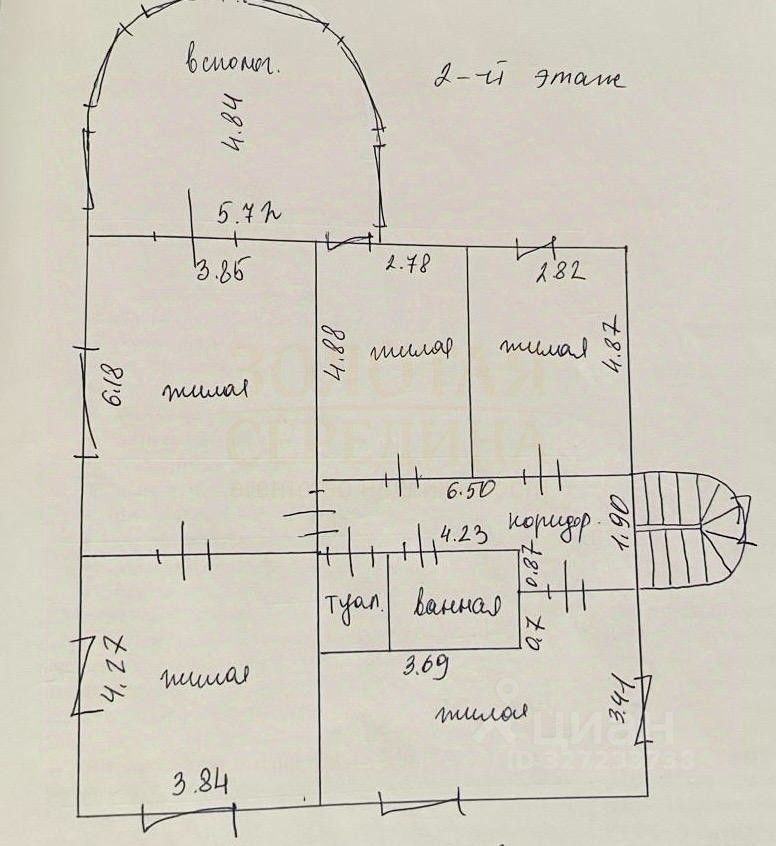 вспомог.
2-й этаж
4.84
5.72
3.85
2.78
2.82
4.88
жилая
жилая
4.87
6.18
жилая
ЗОЛОТАЯ
СЕРЕДИНА
агентство недвижимости
6.50
коридор.
1.90
4.23
0.87
туал.
ванная
0.7
3.69
4.27
жилая
жилая
3.41
циан
ID 327233738
3.84